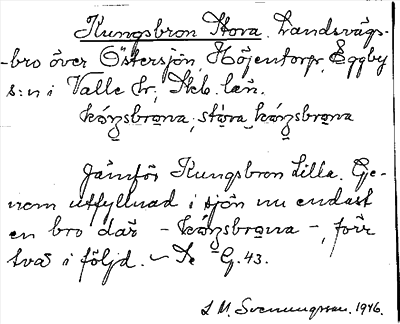 Kungsbron Stora. Landsvägs-
-bro över Östersjön, Höjentorp, Eggby
s:n i Valle hr, Skb. län.
kóŋsbrona, stóra kóŋsbrona
Jämför Kungsbron Lilla. Ge-
nom utfyllnad i sjön nu endast
en bro där - kóŋsbrona -, förr
två i följd. - Se G. 43.
L M. Svenungsson. 1946.